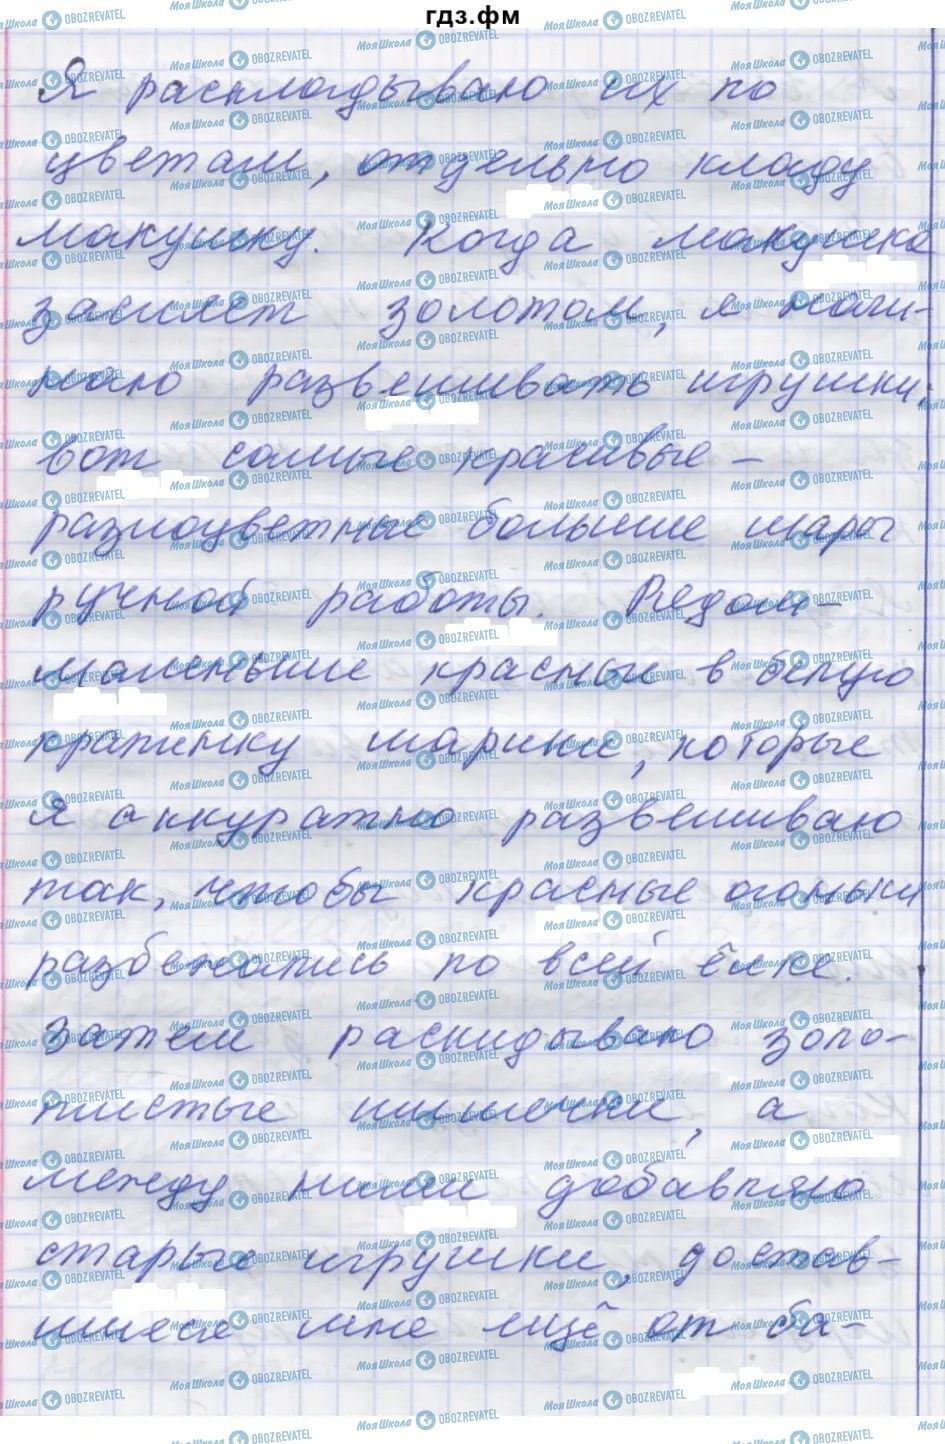 гдз.фм
Я раскладываю их по
цветам, отдельно кладу
макушку. Когда макушка
засияет золотом, я начи-
наю развешивать игрушки:
вот самые красивые –
разноцветные большие шары
ручной работы. Рядом –
маленькие красные в белую
крапинку шарики, которые
я аккуратно развешиваю
так, чтобы красные огоньки
разбежались по всей ёлке.
Затем раскидываю золо-
тистые шишечки, а
между ними добавляю
старые игрушки, достав-
шиеся мне ещё от ба-
Моя Школа OBOZREVATEL